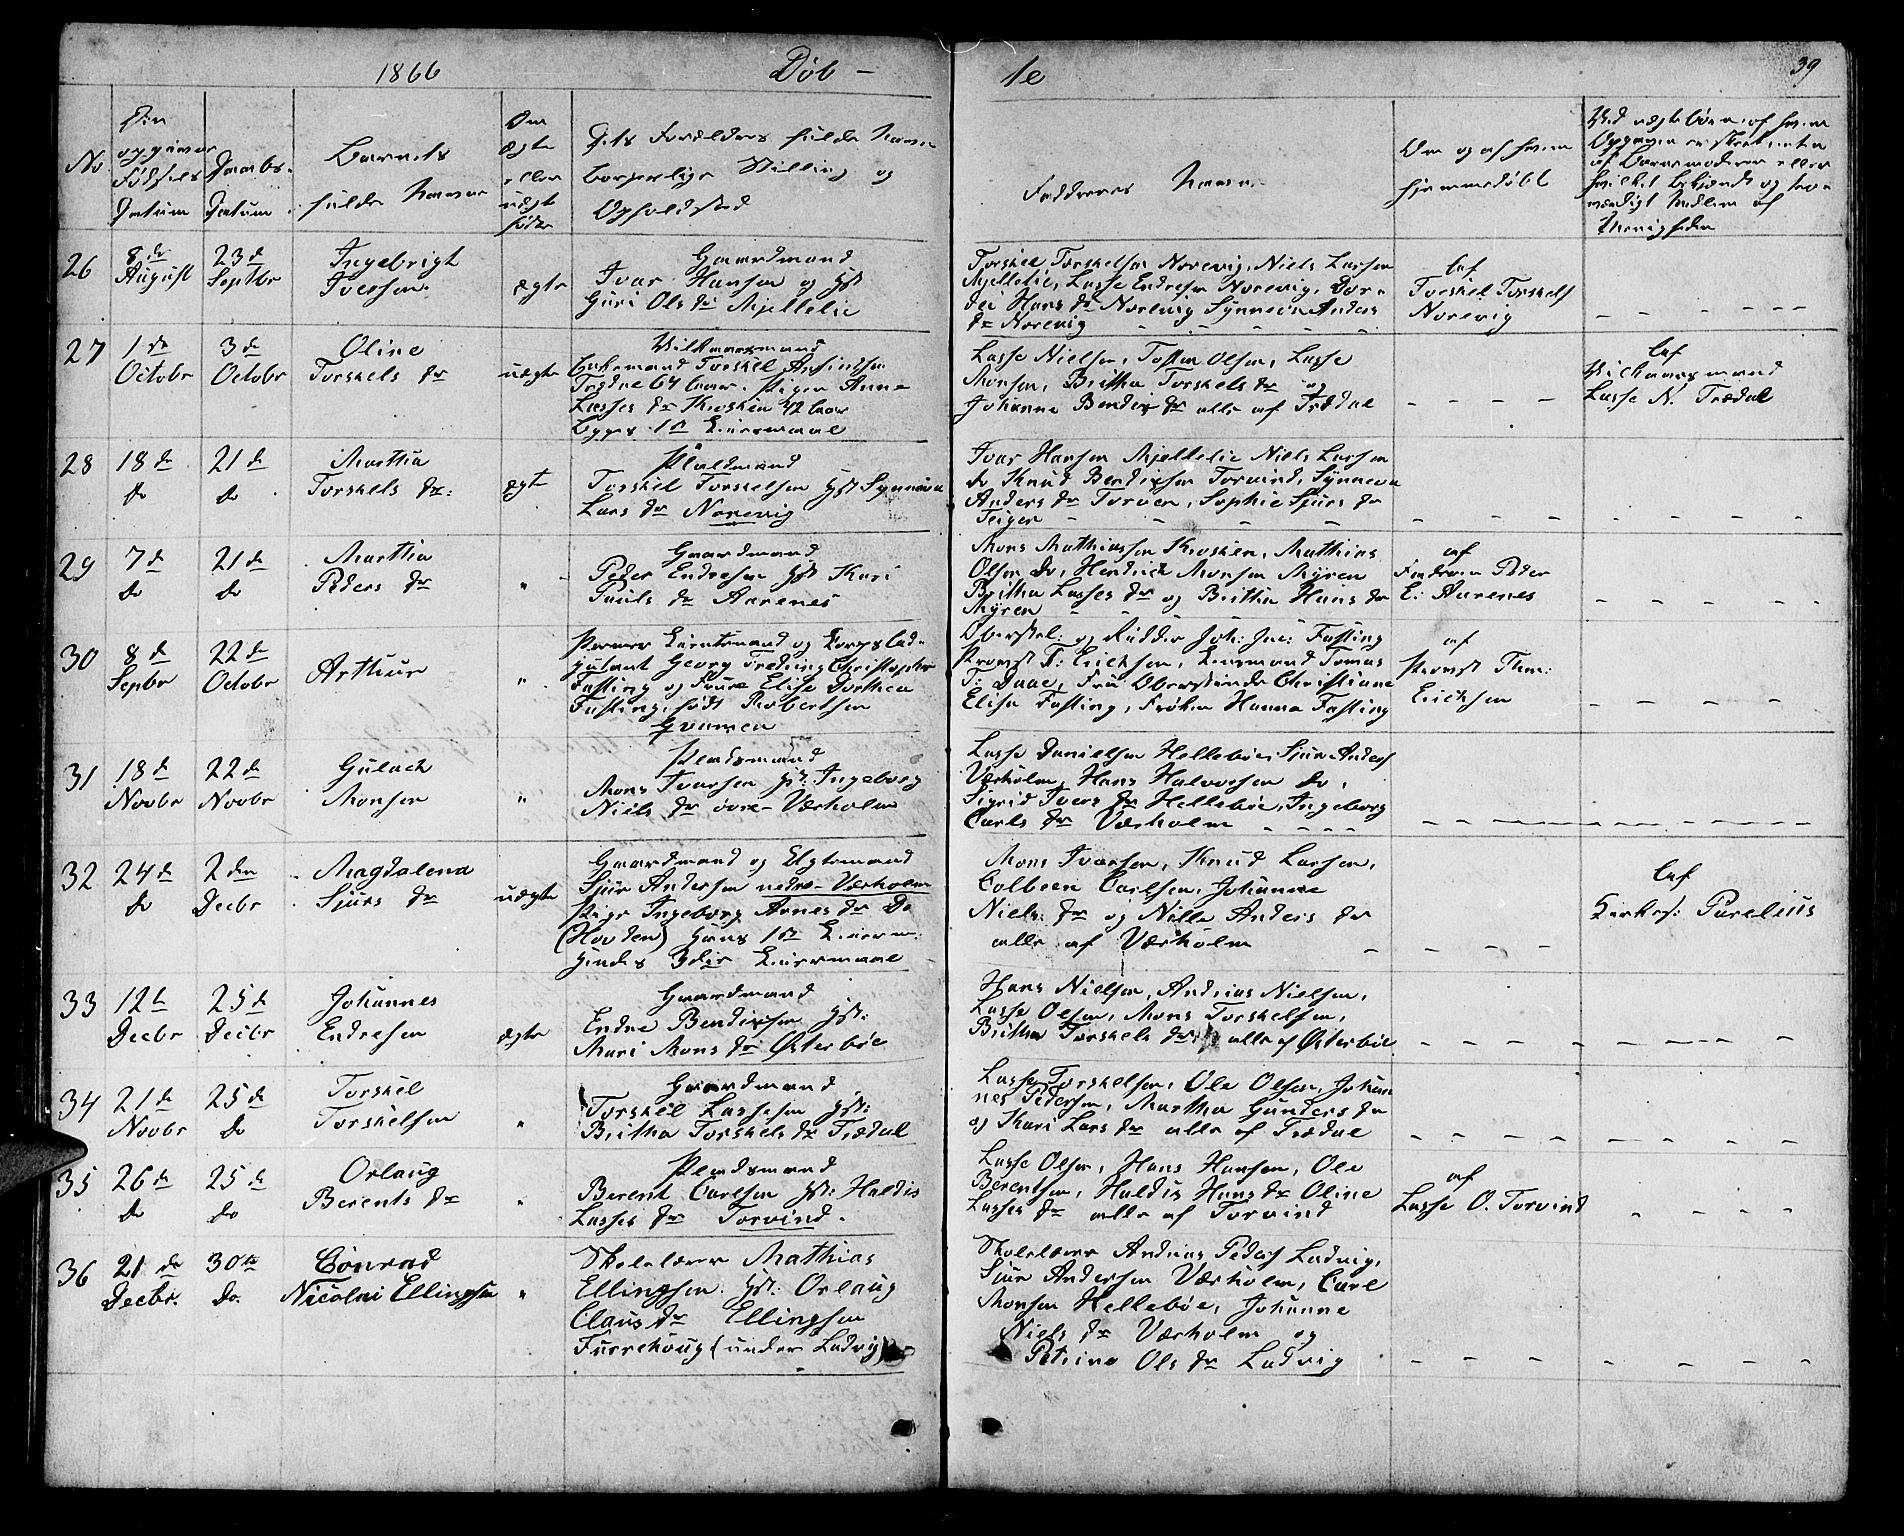 1866
Døb-
te
39
No
Den opgivne Fødsels Datum
Daabs Datum
Barnets fulde Navne
Om ægte eller uægte født
Dets Forældres fulde Navne borgerlige Stilling og Opholdsted
Faddernes Navne
Om og af hvem hjemmedøbt
26
8de August
23d Septbr
Ingebrigt
Iversen
ægte
Gaardmand
Ivar Hansen og Hst
Guri Ols dr Mjellelie
Torskel Torskelsen Norevig, Niels Larsen
Mjellelie, Lasse Endresen Norevig, Dor-
dei Hans dr Norevig Synneve Anders
dr Norevig
af
Torskel Torskels
Norevig
27
1de Octobr
3d Octobr
Oline
Torskels dr
uægte
Enkemand Torskel
Lasses dr 42 Aar
begges 1st Leiermaal
Lasse Nielsen, Tosten Olsen, Lasse
Monsen, Britha Torskels dr og
Johanne Bendix dr alle af Trædal
af
Lasse N. Trædal
28
18de do
21d do
Martha
Torskels dr:
ægte
Pladsmand
Torskel Torskelsen Hst Synneva
Lars dr Norevig
Ivar Hansen Mjellelie Niels Larsen
do Knud Bendixsen Torvind, Synneva
Anders dr Torven, Sophie Sjurs dr
Teigen
29
7d do
21d do
Martha
Peders dr
"
Gaardmand
Peder Endresen Hst Kari
Pauls dr Aarenes
Mons Mathiassen Krossen, Mathias
Olsen do, Hendrick Monsen Myren
Britha Lasses dr og Britha Hans dr
Myren
af
Faderen Peder
E. Aarenes
30
8d Sepbr
22de Octobr
Arthur
"
Premier Lieutenand og Korpsad-
jutant Georg Fredring Christopher
Fasting og Frue Elise Dorthea
Fasting, født Robertsen
Oberstel: og Ridder Joh: Jac: Fasting
Provst T: Erichsen, Lensmand Tomas
T: Daae, Fru Oberstinde Christiane
Elisa Fasting, Frøken Hanna Fasting
af
Provst Thm:
Erichsen
31
18d Novbr
22de Novbr
Gulach
Monsen
"
Pladsmand
Mons Ivarsen Hst: Ingeborg
Niels dr øvre-Værholm
Lasse Danielsen Hellebøe, Sjur Anders
Værholm, Hans Halvorsen do,
Sigrid Ivers dr Hellebøe, Ingeborg
Carls dr Værholm
32
24de do
2den Decbr
Magdalena
Sjurs dr
uægte
Gaardmand og Egtemand
Sjur Andersen nedre-Værholm
Pige Ingeborg Arnes dr do
(Hovden) Hans 1st Leierm:
Hendes 3die Leiermaal
Mons Ivarsen, Knud Larsen,
Colbeen Carlsen, Johanne
Niels dr og Nille Anders dr
alle af Værholm
af
Kirkes: Parelius
33
12te Decbr
25de Decbr
Johannes
Endresen
ægte
Gaardmand
Endre Bendixsen Hst:
Mari Mons dr Østerbøe
Hans Nielsen, Andreas Nielsen,
Lasse Olsen, Mons Torskelsen,
Britha Torskels dr alle af Østerbøe
34
21de Novbr
25de do
Torskel
Torskelsen
"
Gaardmand
Torskel Lassesen Hst:
Britha Torskels dr Trædal
Lasse Torskelsen, Ole Olsen, Johan
nes Pedersen, Martha Gunders dr
og Kari Lars dr alle af Trædal
35
26de do
25de do
Orlaug
Berents dr
"
Pladsmand
Berent Carlsen Hst: Haldis
Lasses dr Torvind.
Lasse Olsen, Hans Hansen, Ole
Berentsen, Haldis Hans dr Oline
Lasses dr alle af Torvind
af
Lasse O. Torvind
36
21de Decbr.
30te do.
Conrad
Nicolai Ellingsen
"
Skolelærer Mathias
Ellingsen Hst: Orlaug
Claus dr Ellingsen
Furrehoug (under Ladvig)
Skolelærer Andreas Peders Ladvig,
Sjur Andersen Værholm, Carl
Monsen Hellebøe, Johanne
Niels dr Værholm og
Petrine Ols dr Ladvig